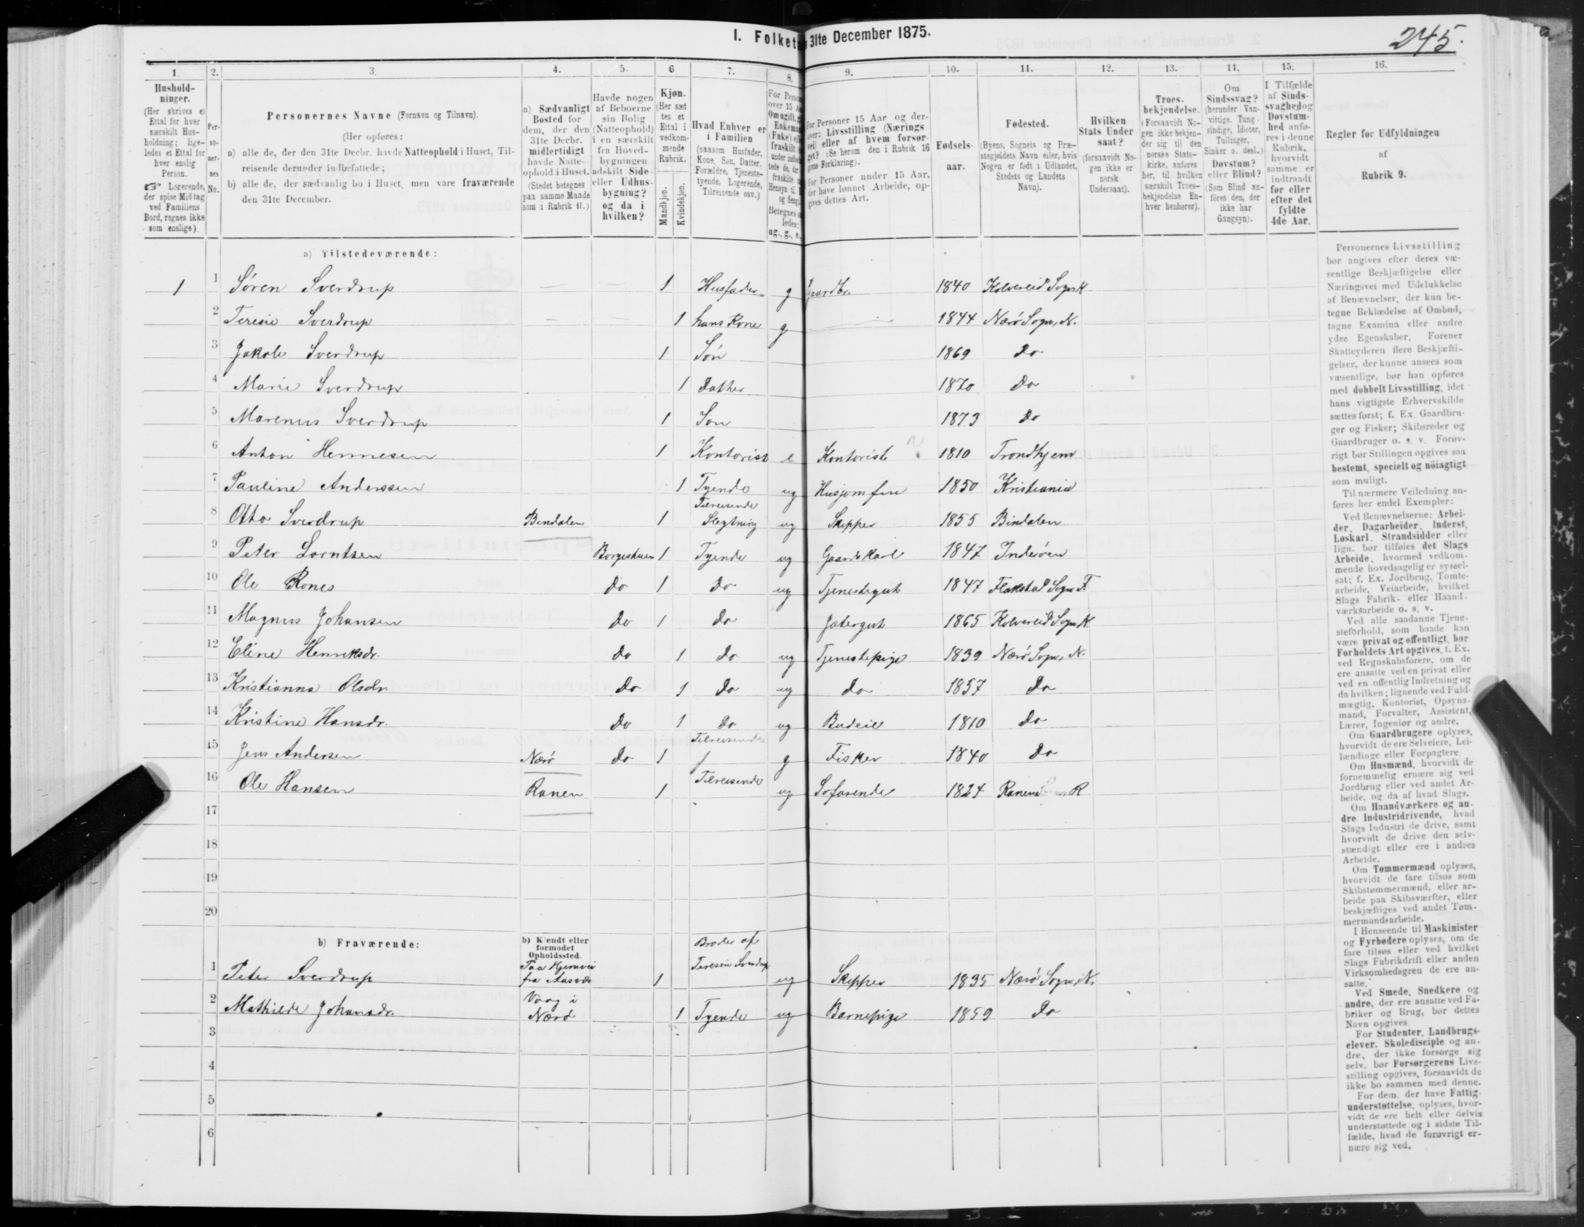 I. Folket 31te December 1875.
245.
1. 2. 3. 4. 5. 6 7. 8. 9. 10. 11. 12. 13. 14. 15. 16.
Husholdninger.
(Her skrives et Ettal for hver særskilt Husholdning; ligeledes et Ettal for hver enslig Person.
☞ Logerende, der spise Middag ved Familiens Bord, regnes ikke som enslige).
Personernes Navne (Fornavn og Tilnavn).
(Her opføres:
a) alle de, der den 31te Decbr. havde Natteophold i Huset, Tilreisende derunder indbefattede;
b) alle de, der sædvanlig bo i Huset, men vare fraværende den 31te December.
a) Sædvanligt Bosted for dem, der den 31te Decbr. midlertidigt havde Natteophold i Huset.
(Stedet betegnes paa samme Maade som i Rubrik 11.)
Havde nogen af Beboerne sin Bolig (Natteophold) i en særskilt fra Hovedbygningen adskilt Side- eller Udhusbygning? og da i hvilken?
Kjøn.
(Her sæt tes et Ettal i vedkommende Rubrik.
Mandkjøn.
Kvindekjøn.
Hvad Enhver er i Familien
(saasom Husfader, Kone, Søn, Datter, Forældre, Tjenestetyende, Logerende, Tilreisende osv.)
For Personer 15 Aar og derover: Livsstilling (Næringsvei) eller af hvem forsørget? (Se herom den i Rubrik 16 givne Forklaring).
For Personer under 15 Aar, der have lønnet Arbeide, opgives dettes Art.
Fødselsaar.
Fødested.
(Byens, Sognets og Præstegjeldets Navn eller, hvis Nogen er født i Udlandet, Stedets og Landets Navn).
Hvilken Stats Undersaat?
(forsaavidt Nogen ikke er norsk Undersaat).
Troesbekjendelse.
(Forsaavidt Nogen ikke bekjender sig til den norske Statskirke, anføres her, til hvilken særskilt Troesbekjendelse Enhver henhører).
Om Sindssvag? (herunder Vanvittige, Tungsindige, Idioter, Tullinger, Sinker o. desl.) Døvstum? eller Blind? (Som Blind anføres den, der ikke har Gangsyn).
I Tilfælde af Sindssvaghed og Døvstumhed anføres i denne Rubrik, hvorvidt samme er indtraadt før eller efter det fyldte 4de Aar.
Regler før Udfyldningen
af
Rubrik 9.
a) Tilstedeværende:
1 1 Søren Sverdrup — — 1 Husfader g Gaardbr. 1840 Kolvereid Sogn K
2 Teresie Sverdrup 1 hans Kone g 1844 Nærø Sogn, N.
3 Jakob Sverdrup 1 Søn 1869 do
4 Marie Sverdrup 1 Datter 1870 do
5 Marenus Sverdrup 1 Søn 1873 do
6 Anton Hermesen 1 Kontorist e Kontorist 1810 Trondhjem
7 Pauline Anderssen 1 Tyende ug Husjomfru 1850 Kristiania
8 Otto Sverdrup Bindalen 1 Tilreisende Slegtning ug Skipper 1855 Bindalen
9 Peter Lorntsen Borgestuen 1 Tyende ug Gaardskarl 1847 Inderøen
10 Ole Rones do 1 do ug Tjenestegut 1847 Flakstad Sogn F
11 Magnus Johansen do 1 do Jætergut 1865 Kolvereid Sogn K
12 Eline Henriksdr. do 1 do ug Tjenestepige 1839 Nærø Sogn, N.
13 Kristianna Olsdr do 1 do ug do 1857 do
14 Kristine Hansdr. do 1 do ug Budeie 1810 do
15 Jens Andersen Nærø do 1 Tilreisende g Fisker 1840 do
16 Ole Hansen Ranen 1 Tilreisende ug Søfarende 1824 Ranen R
17
18
19
20
b) Fraværende:
b) Kjendt eller formodet Opholdssted.
1 Peter Sverdrup Paa Hjemvei fra 1 Broder af Teresie Sverdrup ug Skipper 1835 Nærø Sogn, N.
2 Mathilde Johansdr. Vaag i Nærø 1 Tyende ug Barnepige 1859 do
3
4
5
6
Personernes Livsstilling bør angives efter deres væsentlige Beskjæftigelse eller Næringsvei med Udelukkelse af Benævnelser, der kun betegne Beklædelse af Ombud, tagne Examina eller andre ydre Egenskaber. Forener Skatteyderen flere Beskjæftigelser, der kunne ansees som væsentlige, bør han opføres med dobbelt Livsstilling, idet hans vigtigste Erhvervskilde sættes først; f. Ex. Gaardbruger og Fisker; Skibsreder og Gaardbruger o. s. v. Forøvrigt bør Stillingen opgives saa bestemt, specielt og nøiagtigt som muligt.
Til nærmere Veiledning anføres her endel Exempler:
Ved Benævnelserne: Arbeider, Dagarbeider, Inderst, Løskarl, Strandsidder eller lign. bør tilføies det Slags Arbeide, hvormed vedkommende hovedsagelig er sysselsat; f. Ex. Jordbrug, Tomtearbeide, Veiarbeide, hvilket Slags Fabrik- eller Haandværksarbeide o. s. v.
Ved alle saadanne Tjenesteforhold, som baade kan være privat og offentligt, bør Forholdets Art opgives, f. Ex. ved Regnskabsførere, om de ere ansatte ved en privat eller ved en offentlig Indretning og da hvilken; lignende ved Fuldmægtig, Kontorist, Opsynsmand, Forvalter, Assistent, Lærer, Ingeniør og andre.
Om Gaardbrugere oplyses, hvorvidt de ere Selveiere, Leilændinge eller Forpagtere.
Om Husmænd, hvorvidt de fornemmelig ernære sig ved Jordbrug eller ved andet Arbeide, og da af hvad Slags.
Om Haandværkere og andre Industridrivende, hvad Slags Industri de drive, samt hvorvidt de drive den selvstændigt eller ere i andres Arbeide.
Om Tømmermænd oplyses, hvorvidt de fare tilsøs som Skibstømmermænd, eller arbeide paa Skibsværfter, eller beskjæftiges ved andet Tømmermandsarbeide.
I Henseende til Maskinister og Fyrbødere oplyses, om de fare tilsøs eller ved hvilket Slags Fabrikdrift eller anden Virksomhedsgren de ere ansatte.
Ved Smede, Snedkere og andre, der ere ansatte ved Fabriker og Brug, bør dettes Navn opgives.
For Studenter, Landbrugselever, Skoledisciple og andre, der ikke forsørge sig selv, bør Forsørgerens Livsstilling opgives, forsaavidt de ikke bo sammen med denne.
For dem, der have Fattigunderstøttelse, oplyses, hvorvidt de ere helt eller delvis understøttede og i sidste Tilfælde, hvad de forøvrigt ernære sig ved.